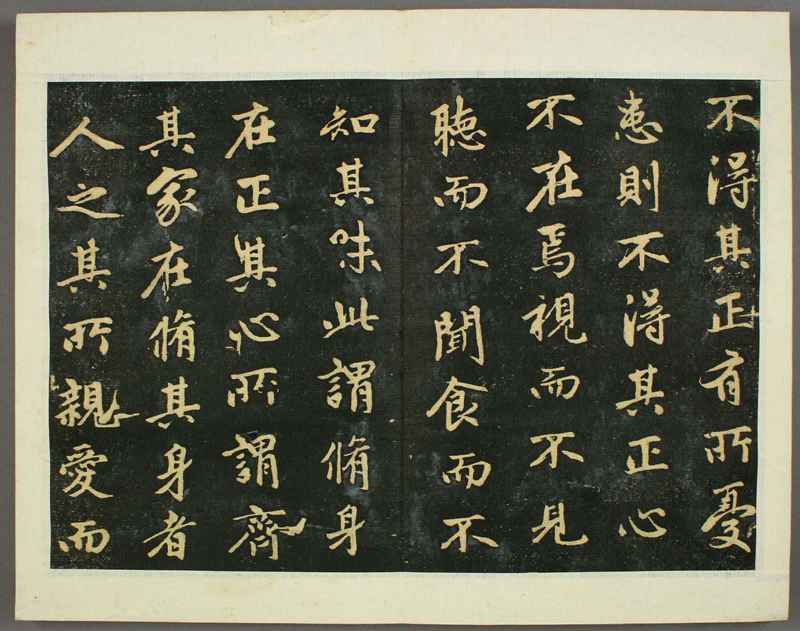 不得其正有所憂
患則不得其正心
不在焉視而不見
聴而不聞食而不
知其味此謂脩身
在正其心所謂齊
其家在脩其身者
人之其所親愛而